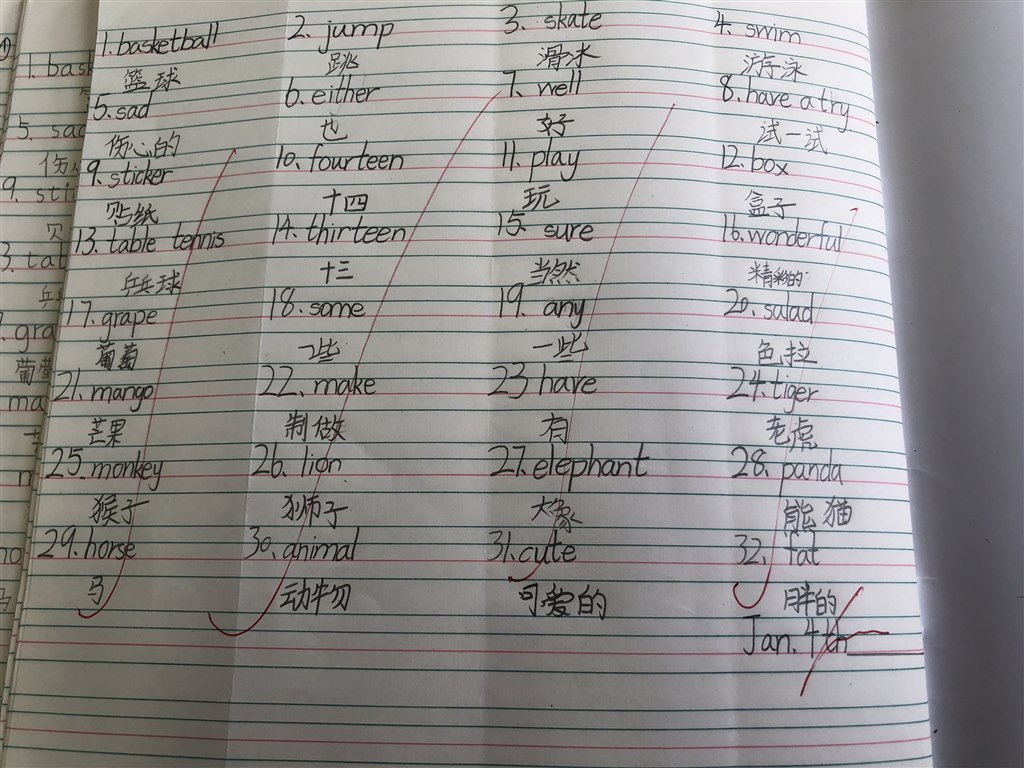 1. basketball 2. jump 3. skate 4. swim
篮球 跳 滑冰 游泳
5. sad 6. either 7. well 8. have a try
伤心的 也 好 试一试
9. sticker 10. fourteen 11. play 12. box
贴纸 十四 玩 盒子
13. table tennis 14. thirteen 15. sure 16. wonderful
乒乓球 十三 当然 精彩的
17. grape 18. some 19. any 20. salad
葡萄 一些 一些 色拉
21. mango 22. make 23 have 24. tiger
芒果 制做 有 老虎
25. monkey 26. lion 27. elephant 28. panda
猴子 狮子 大象 熊猫
29. horse 30. animal 31. cute 32. fat
马 动物 可爱的 胖的
Jan. 4th